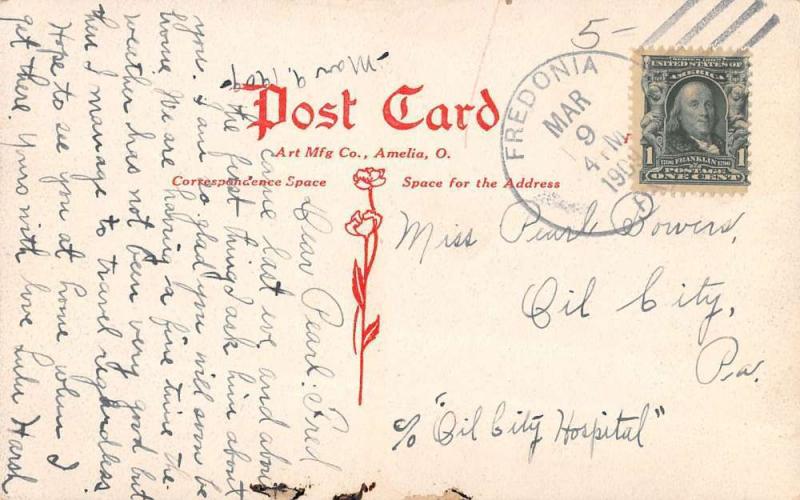 5-
FREDONIA
MAR
9
4 PM
UNITED STATES OF
AMERICA
1 FRANKLIN 1
POSTAGE
ONE CENT
Post Card
Art Mfg Co., Amelia, O.
Correspondence Space
Space for the Address
Mar 9, 1909.
Dear Pearl: Fred
came last eve and about
the first thing I ask him about
you. I am so glad you will soon be
home. We are having a fine time the
weather has not been very good but
I manage to travel regardless
Hope to see you at home when I
get there. Yours with love Lulu Harsh
Miss Pearl Bowers,
Oil City,
Pa.
c/o "Oil City Hospital"